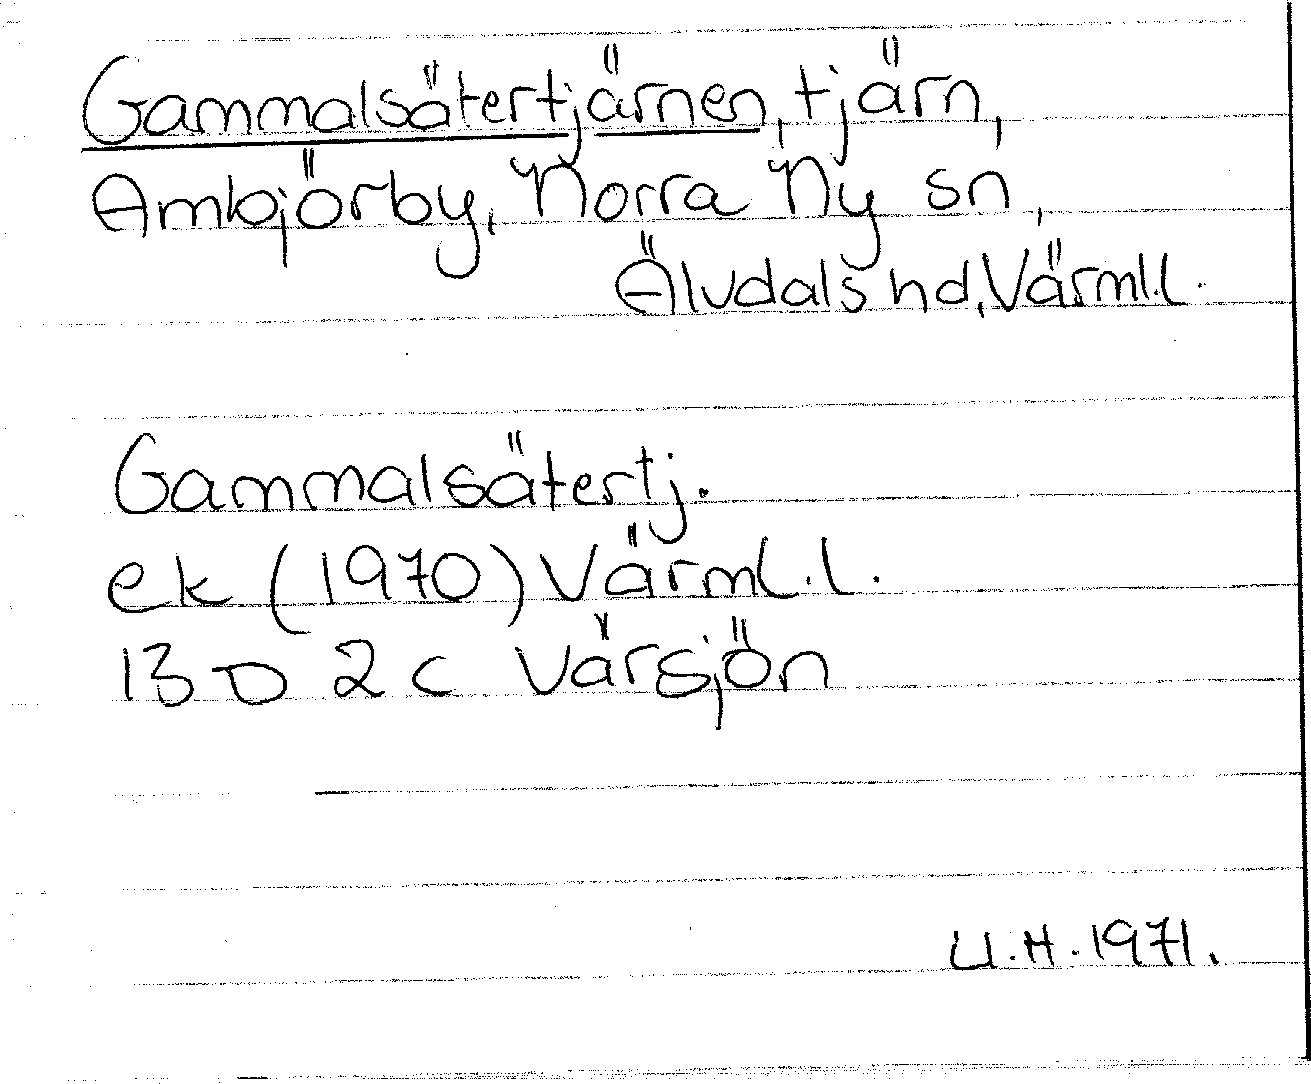 Gammalsätertjärnen, tjärn,
Ambjörby, Norra Ny sn,
Älvdals hd, Värml.l.
Gammalsätertj.
ek (1970) Värml.l.
13 D 2 c Värsjön
U.H. 1971.